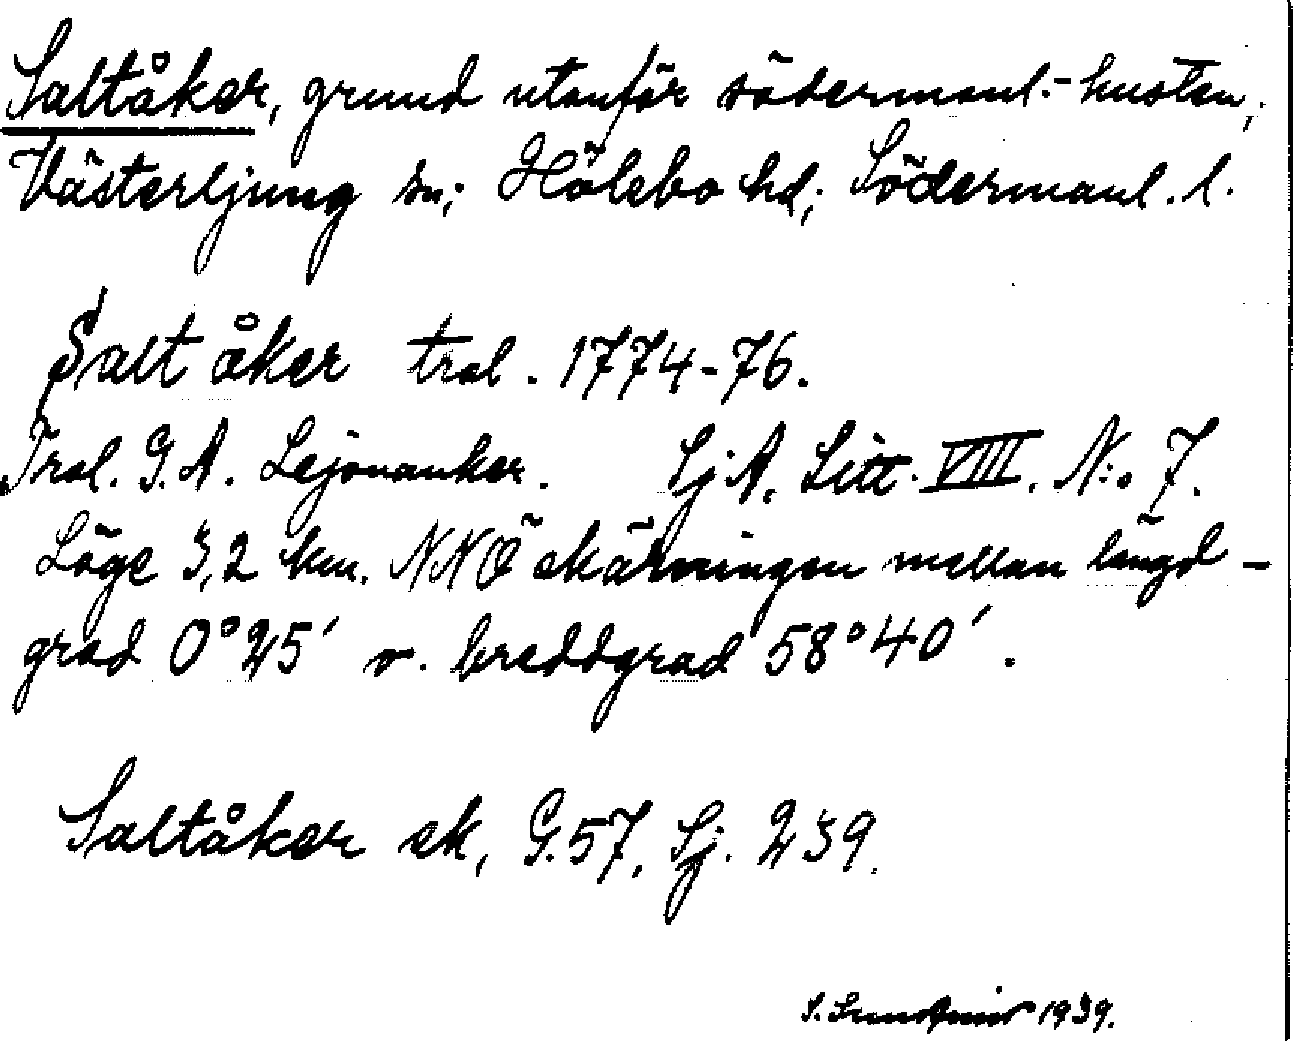 Saltåker, grund utanför södermanl.-kusten,
Västerljung sn; Hölebo hd; Södermanl. l.
Salt åker tral. 1774-76.
Tral. G. A. Lejonanker. Sj. A. Litt. VIIII. N:o 7.
Läge 3,2 km. NNÖ skärningen mellan längd-
grad 0°25' o. breddgrad 58°40'.
Saltåker sk, G. 57, Sj. 239.
S. 1939.